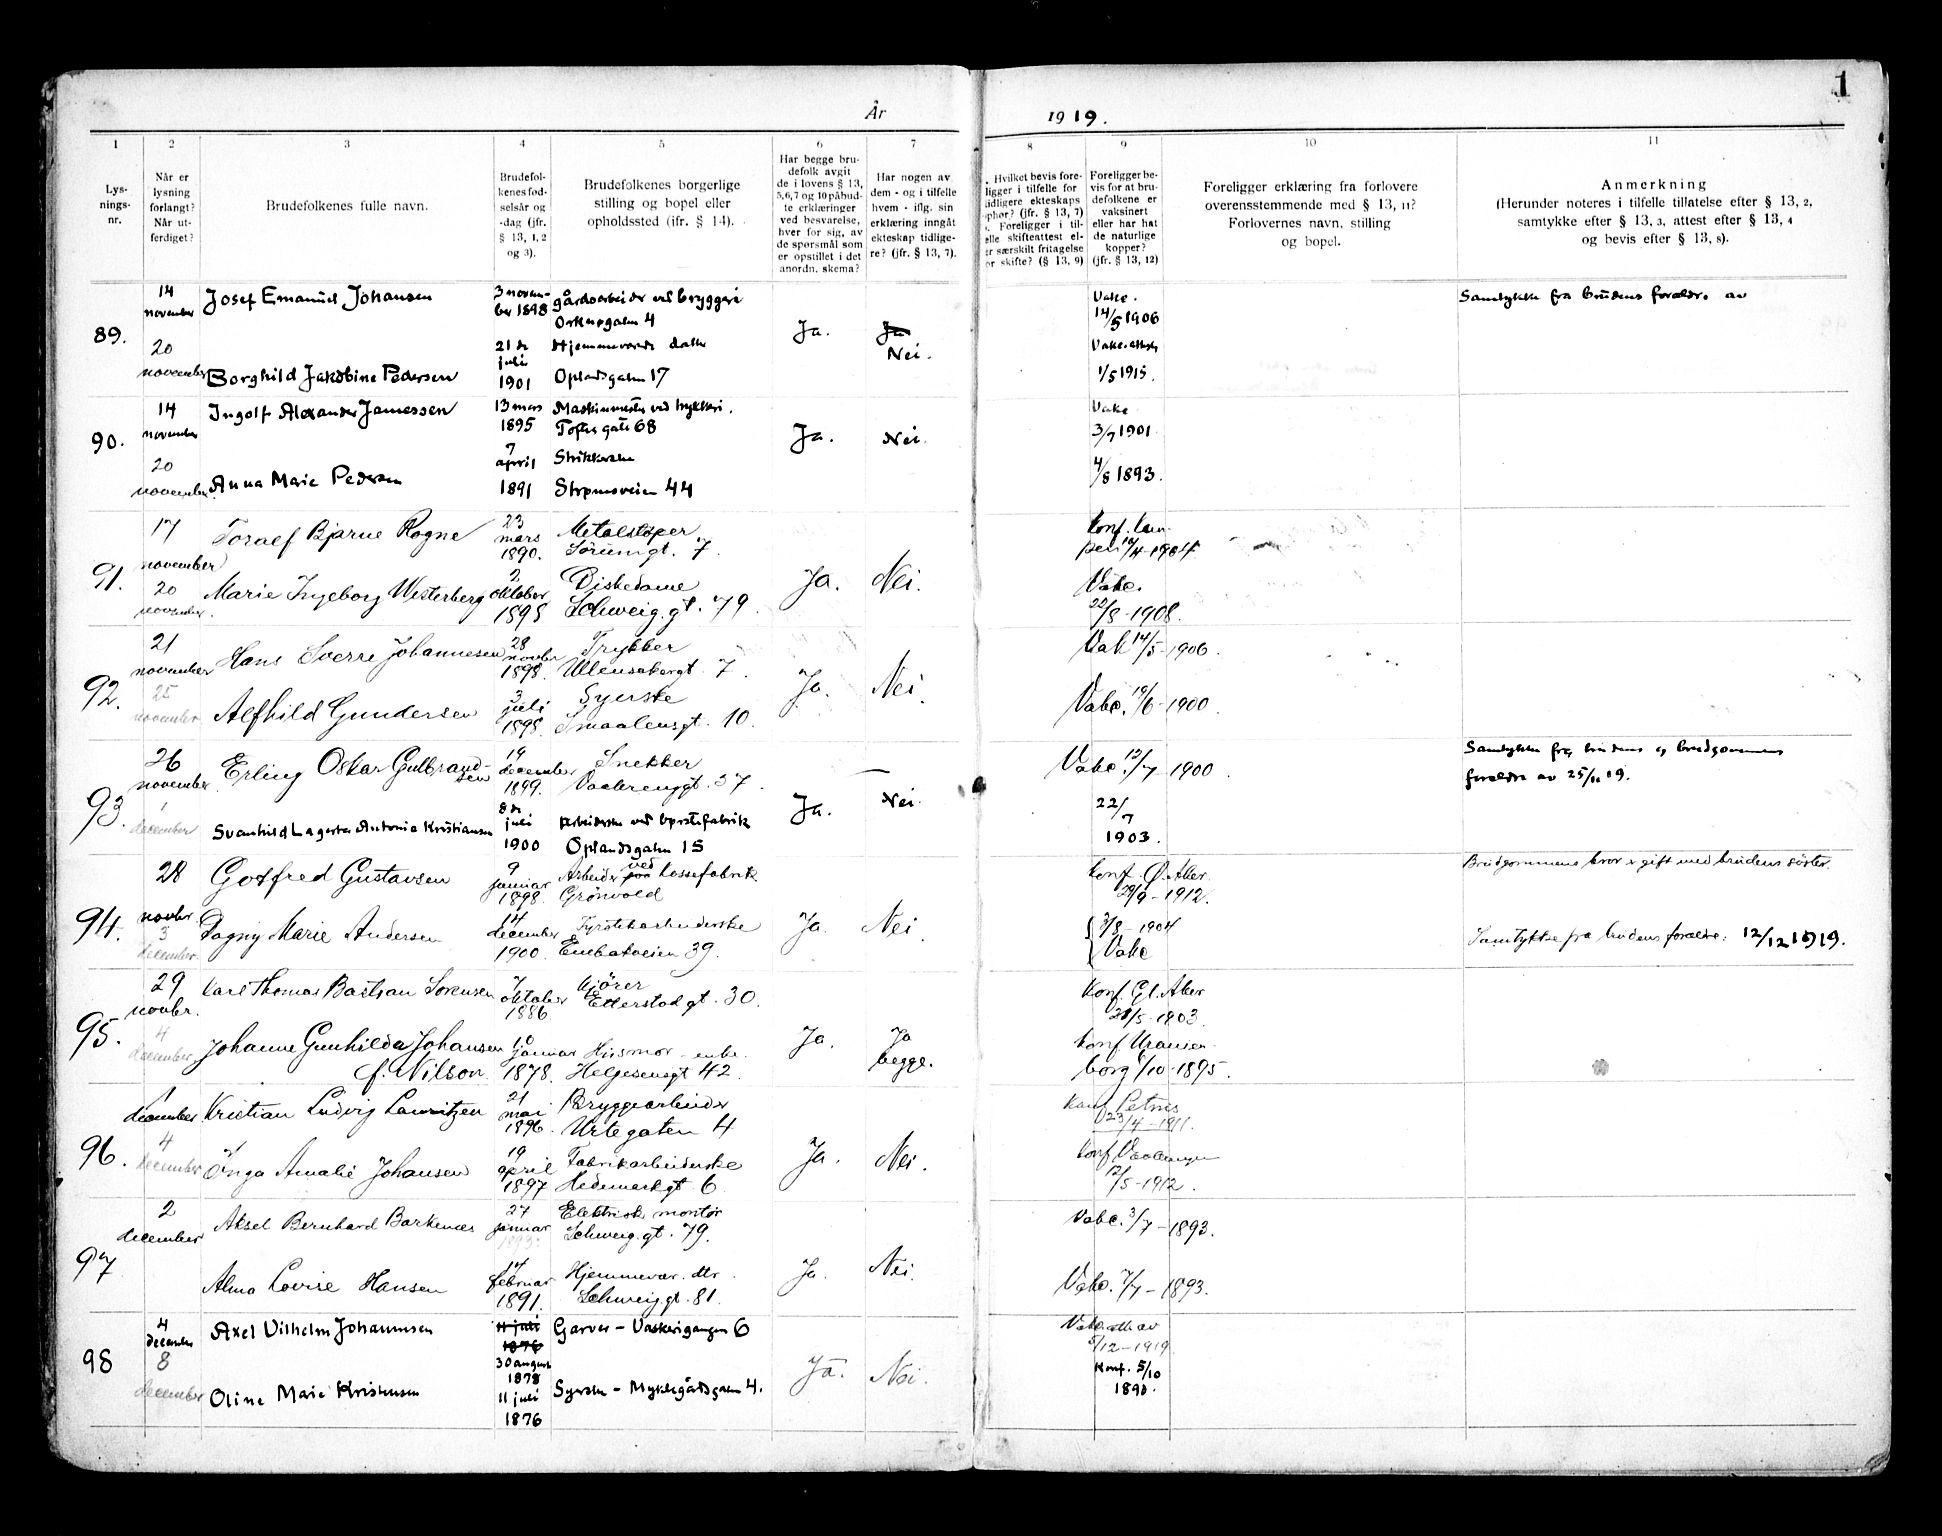 1
År 1919.
1 2 3 4 5 6 7 8 9 10 11
Lys-
nings-
nr.
Når er
lysning
forlangt?
Når ut-
ferdiget?
Brudefolkenes fulle navn.
Brudefol-
kenes fød-
selsår og
-dag (jfr.
§ 13, 1, 2
og 3).
Brudefolkenes borgerlige
stilling og bopel eller
opholdssted (jfr. § 14).
Har begge bru-
defolk avgit
de i lovens § 13,
5,6,7 og 10 påbud-
te erklæringer
ved besvarelse,
hver for sig, av
de spørsmål som
er opstillet i det
anordn. skema?
Har nogen av
dem - og i tilfelle
hvem - iflg. sin
erklæring inngått
ekteskap tidlige-
re? (jfr. § 13, 7).
. Hvilket bevis fore-
ligger i tilfelle for
tidligere ekteskaps
ophør? (jfr. § 13, 7)
. Foreligger i til-
elle skifteattest el-
er særskilt fritagelse
or skifte? (§ 13, 9)
Foreligger be-
vis for at bru-
defolkene er
vaksinert
eller har hat
de naturlige
kopper?
(jfr. § 13, 12)
Foreligger erklæring fra forlovere
overensstemmende med § 13, 11?
Forlovernes navn, stilling
og bopel.
Anmerkning
(Herunder noteres i tilfelle tillatelse efter § 13, 2,
samtykke efter § 13, 3, attest efter § 13, 4
og bevis efter § 13, 8).
89.
14
november
20
november
Josef Emanuel Johansen
3 novem-
ber 1898
gårdsarbeider ved bryggeri
4
Borghild Jakobine Pedersen
21 de
juli
1901
Hjemmeværende datter
Oplandsgaten 17
Ja.
Ja
Nei.
Vakc.
14/5 1906
Vakc. attest
1/5 1915.
Samtykke fra brudens foreldre. av
90.
14
november
20
november.
Ingolf Alexander Jamessen
13 mars
1895
Maskinmester ved trykkeri.
Toftes gate 68
Anna Marie Pedersen
7
april
1891
Strikkerske
Strømsveien 44
Ja.
Nei.
Vakc
3/7 1901.
4/8 1893.
91.
17
november
20
november.
Toralf Bjarne Rogne
23
mars
1890.
Metalstøper
Sörumgt. 7.
Marie Ingeborg Westerberg
2
oktober
1895
Diskedame
Schweig. gt. 79.
Ja.
Nei.
Konf. Kam-
pen
Vakc.
22/8-1908.
92.
21
november
25
november
Hans Sverre Johannesen
28
novbr
1898.
Trykker
Ullensakergt. 7.
Alfhild Gundersen
3
juli
1898.
Syerske
Smaalensgt. 10.
Ja.
Nei
Vak 14/5-1906.
Vakc. 19/6-1900.
93.
26
november
1
december
Erling Oskar Gulbrand-
sen
19
december
1899.
Snekker
Vaalerenggt. 37.
Svanhild Lagertha Antonie Kristiansen
8 de
juli
1900
Arbeiderske ved børstefabrik
Oplandsgaten 15
Ja.
Nei.
Vakc. 12/7-1900.
22/
7
1903.
Samtykke fra brudens og brudgommens
foreldre av 25/11 19.
94.
28
novbr.
3
december.
Gotfred Gustavsen
9
januar
1898.
Arbeider ved kassefabrik
Grönvold
Dagny Marie Andersen
14
december
1900.
39.
Ja.
Nei.
Konf. Ø. Aker.
29/9-1912.
3/8-1904
Vakc
Brudgommens bror er gift med brudens söster.
Samtykke fra brudens forældre. 12/12 1919.
95.
29
novbr.
4
december
Karl Thomas Bastian Sorensen
7
oktober
1886
Kjörer
Etterstad gt. 30.
Johanne Gunhilda Johansen
f. Nilson.
10
januar
1878.
Husmor - enke.
Helgesensgt 42.
Ja.
Ja
begge.
Konf. Gl. Aker
28/5-1903.
Konf Uranien-
borg 6/10-1895.
96.
1
december
4
december
Kristian Ludvig Lauritzen
21
mai
1896.
Bryggearbeider
Urtegaten 4
Inga Amalie Johansen
19
april
1897
Fabrikarbeiderske
Hedemarkgt 6.
Ja.
Nei.
Konf Petrus
23/4-1911.
Konf Vaalerengen
12/5-1912.
97
2
december
Aksel Bernhard Barkenæs
27
januar
1893.
Elektrisk montör
Schweig. gt. 79.
Alma Lovise Hansen
14
februar
1891.
Hjemmevær. dtr.
Schweig. gt. 81.
Ja.
Nei.
Vakc. 3/7-1893.
Vakc. 7/7-1893.
98
4
december
8
december
Axel Vilhelm Johannsen
11 juli
1876
30 august
1878
Garver - Vaskerigangen 6
Oline Marie Kristensen
11 juli
1876
Syerske - Myklegårdsgaten 4.
Ja
Nei.
Vakc. att. av
8/12-1919.
Konf. 5/10
1890.